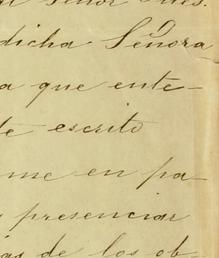 Señor
dicha Señora
a que ente-
te escrito
me en pa-
presenciar
de los ob-